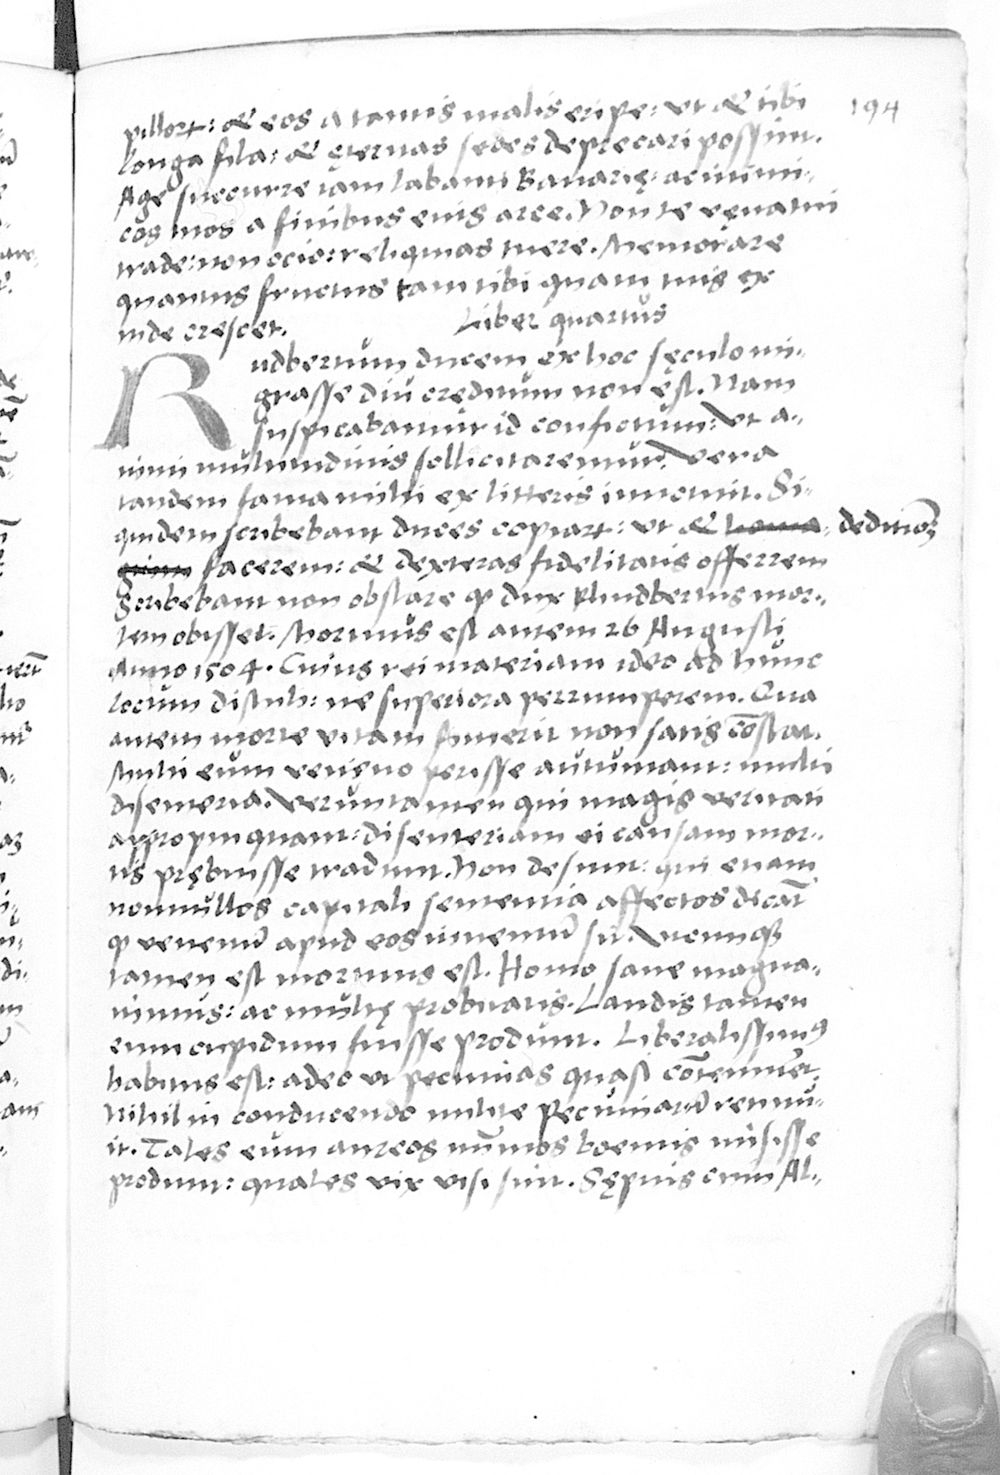 194
pillorꝝ: & eos a tantis malis eripe: ut & tibi
longa fila: & ęternas sedes deprecari possint.
Age succurre iam labanti Bauarię: ac inimi-
cos nos a finibus eius arce. Non te venatui
trade: non ocio: reliquias tuere. Memorare
quantus fructus tam tibi quam tuis ex
inde crescet.
Liber quartus
Rudbertum ducem ex hoc sęculo mi-
grasse diu creditum non est. Nam
suspicabamur id confictum: ut a-
nimi multitudinis sollicitarentur. Vera
tandem fama mihi ex litteris innotuit. Si-
quidem scribebant duces copiarꝝ: ut & deditionē
facerem: & dexteras fidelitatis offerrem
Scribebant non obstare ꝙ dux Rhudbertus mor-
tem obisset. Mortuus est autem 26 Augusti
Anno 1504. Cuius rei materiam ideo ad hunc
locum distuli: ne superiora perrumperem. Qua
autem morte vitam finierit non satis cōstat.
Multi eum veneno perisse autumant: multi
disenteria. Veruntamen qui magis veritati
appropinquant: disenteriam ei causam mor-
tis prębuisse tradunt. Non desunt: qui etiam
nonnullos capitali sententia affectos dicāt
ꝙ venenū apud eos inuentū sit. Vtcunqꝫ
tamen est mortuus est. Homo sane magna-
nimus: ac multę probitatis. Laudis tamen
eum cupidum fuisse produnt. Liberalissimꝰ
habitus est: adeo ut pecunias quasi cōtemneret.
Nihil in conducendo milite pecuniarū rennu-
it. Tales eum aureos nūmos boemis misisse
produnt: quales vix visi sunt. Sępius cum Al-